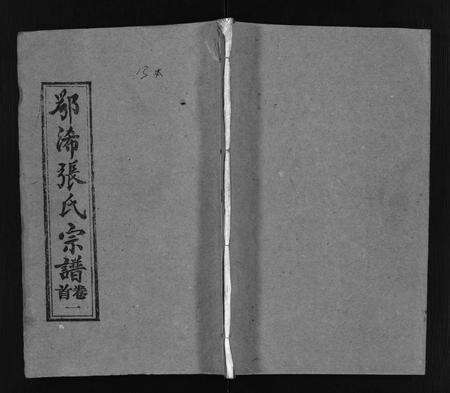 13本
鄂浠張氏宗譜
卷首一